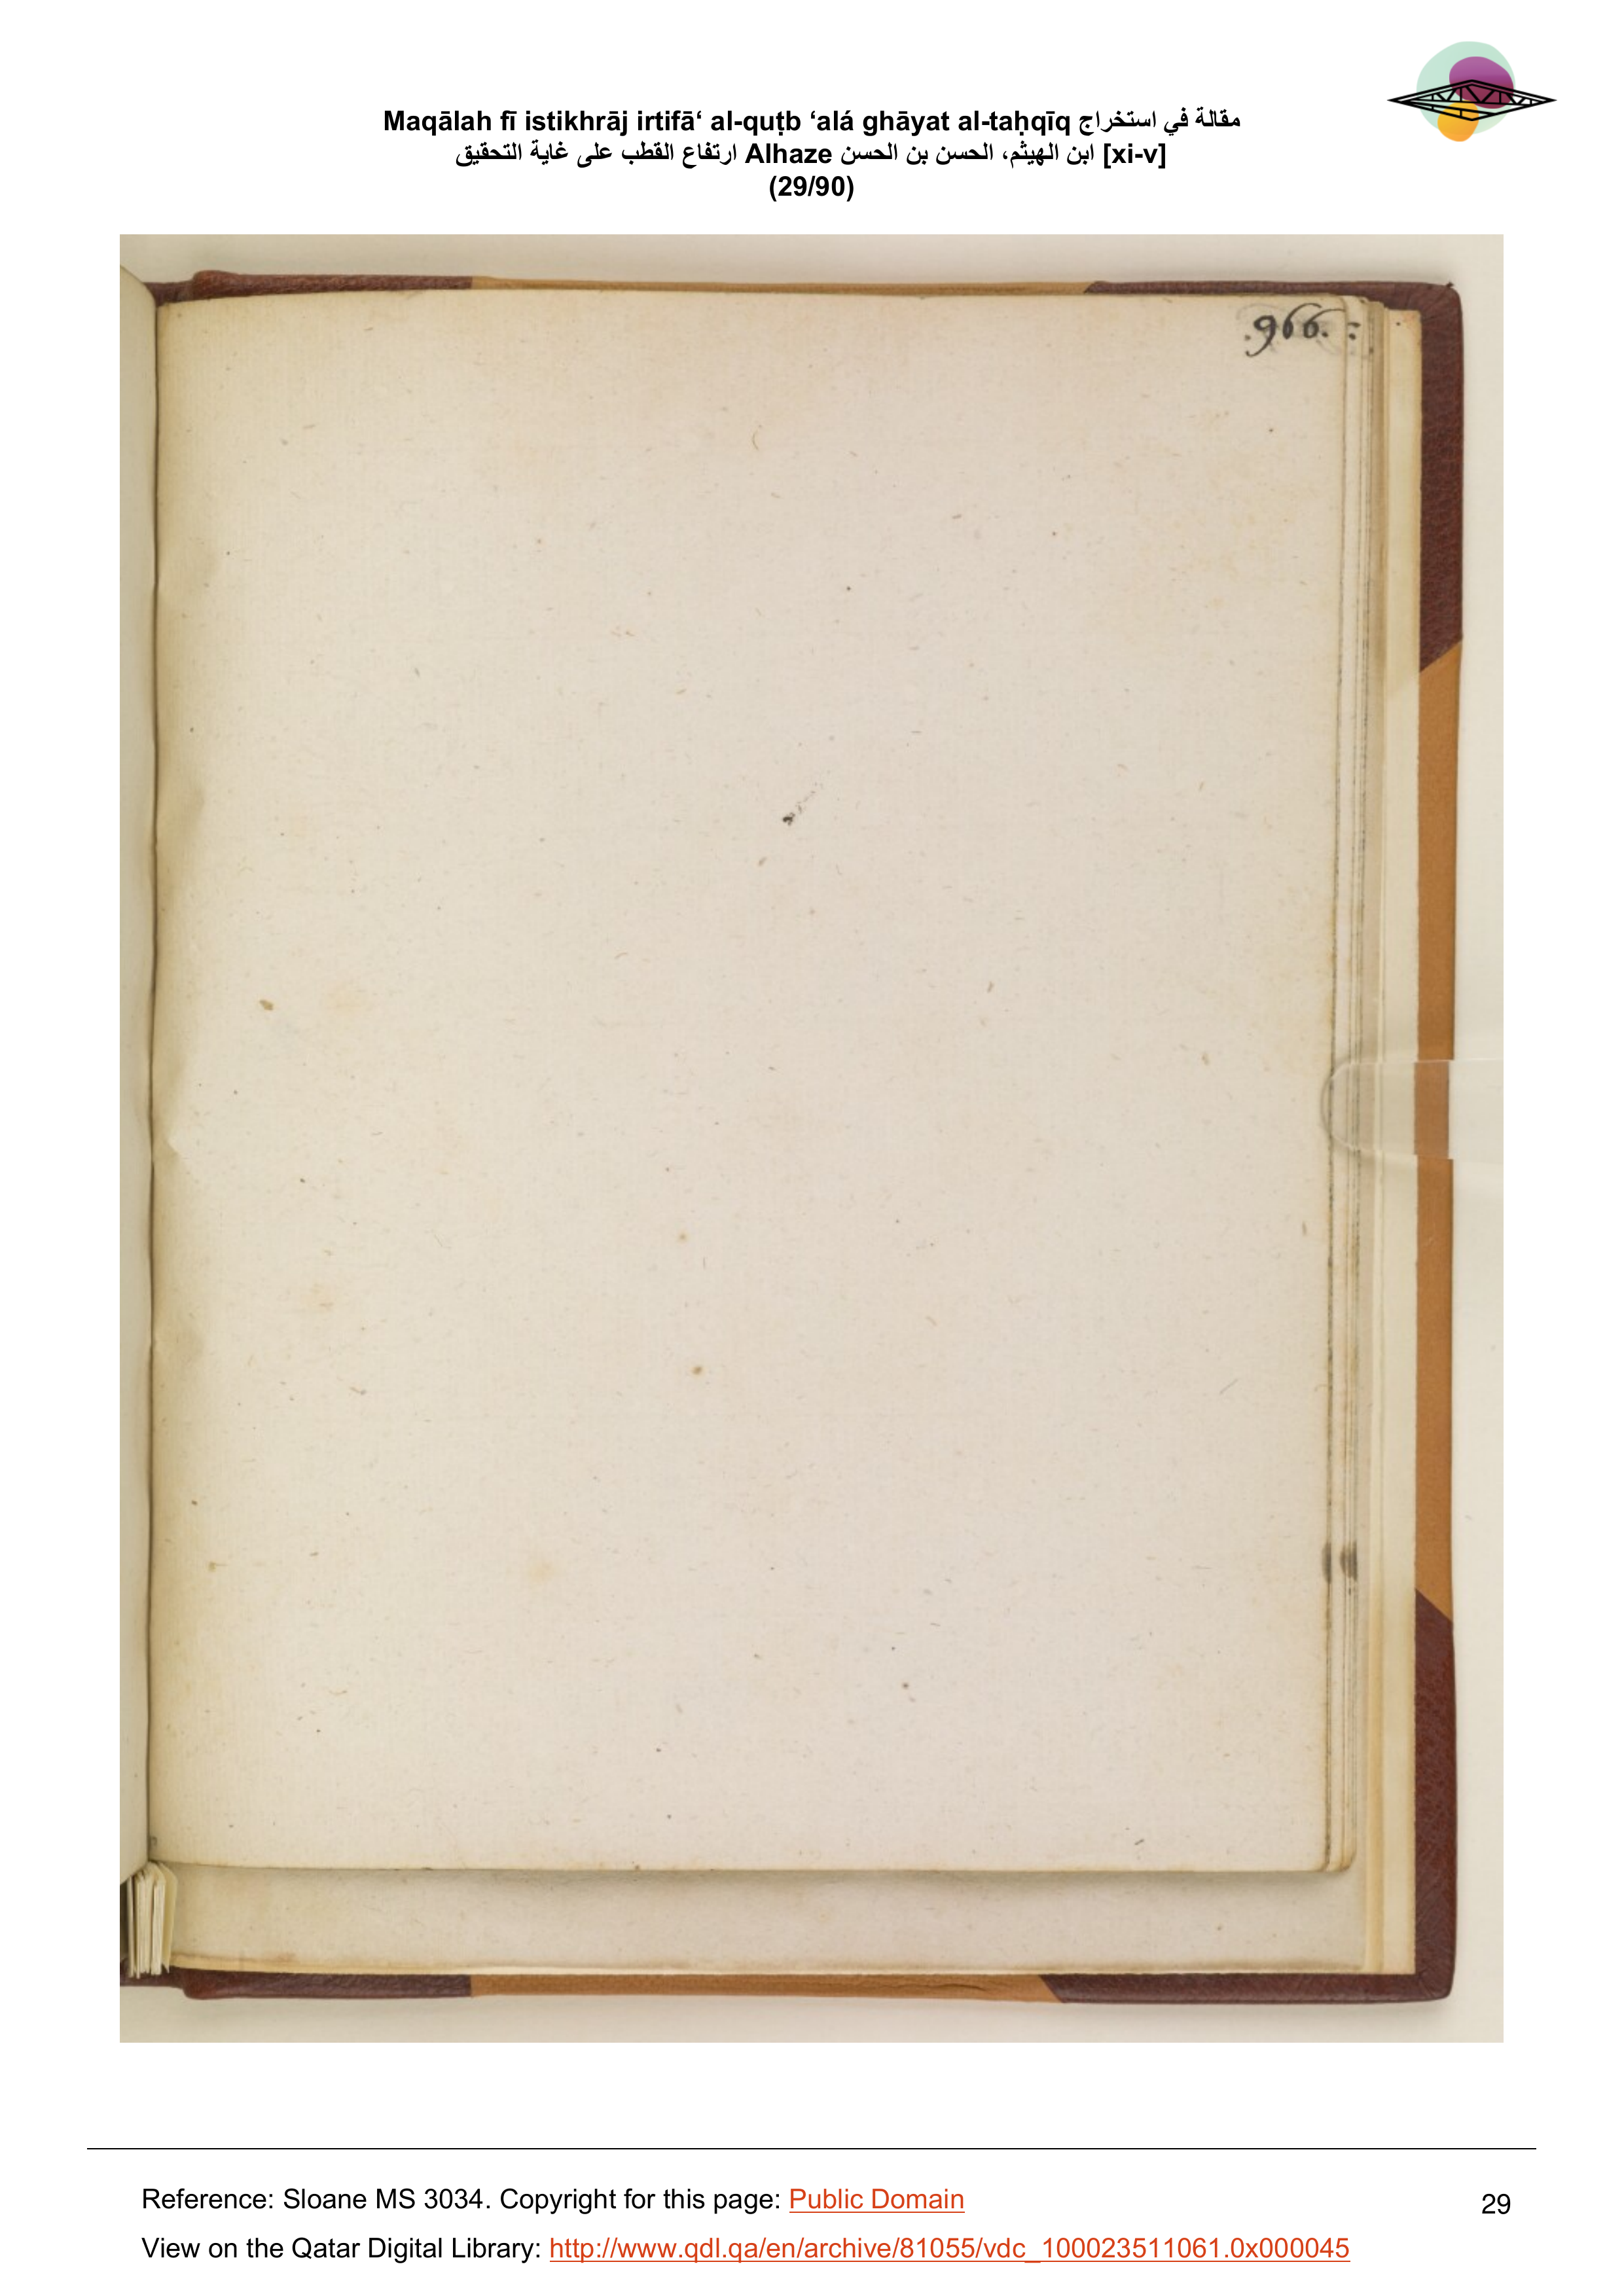 Maqālah fī istikhrāj irtifā‘ al-quṭb ‘alá ghāyat al-taḥqīq مقالة في استخراج
ارتفاع القطب على غاية التحقيق Alhaze ابن الهيثم، الحسن بن الحسن [xi-v]
(29/90)
.966. :
Reference: Sloane MS 3034. Copyright for this page: Public Domain
29
View on the Qatar Digital Library: http://www.qdl.qa/en/archive/81055/vdc_100023511061.0x000045